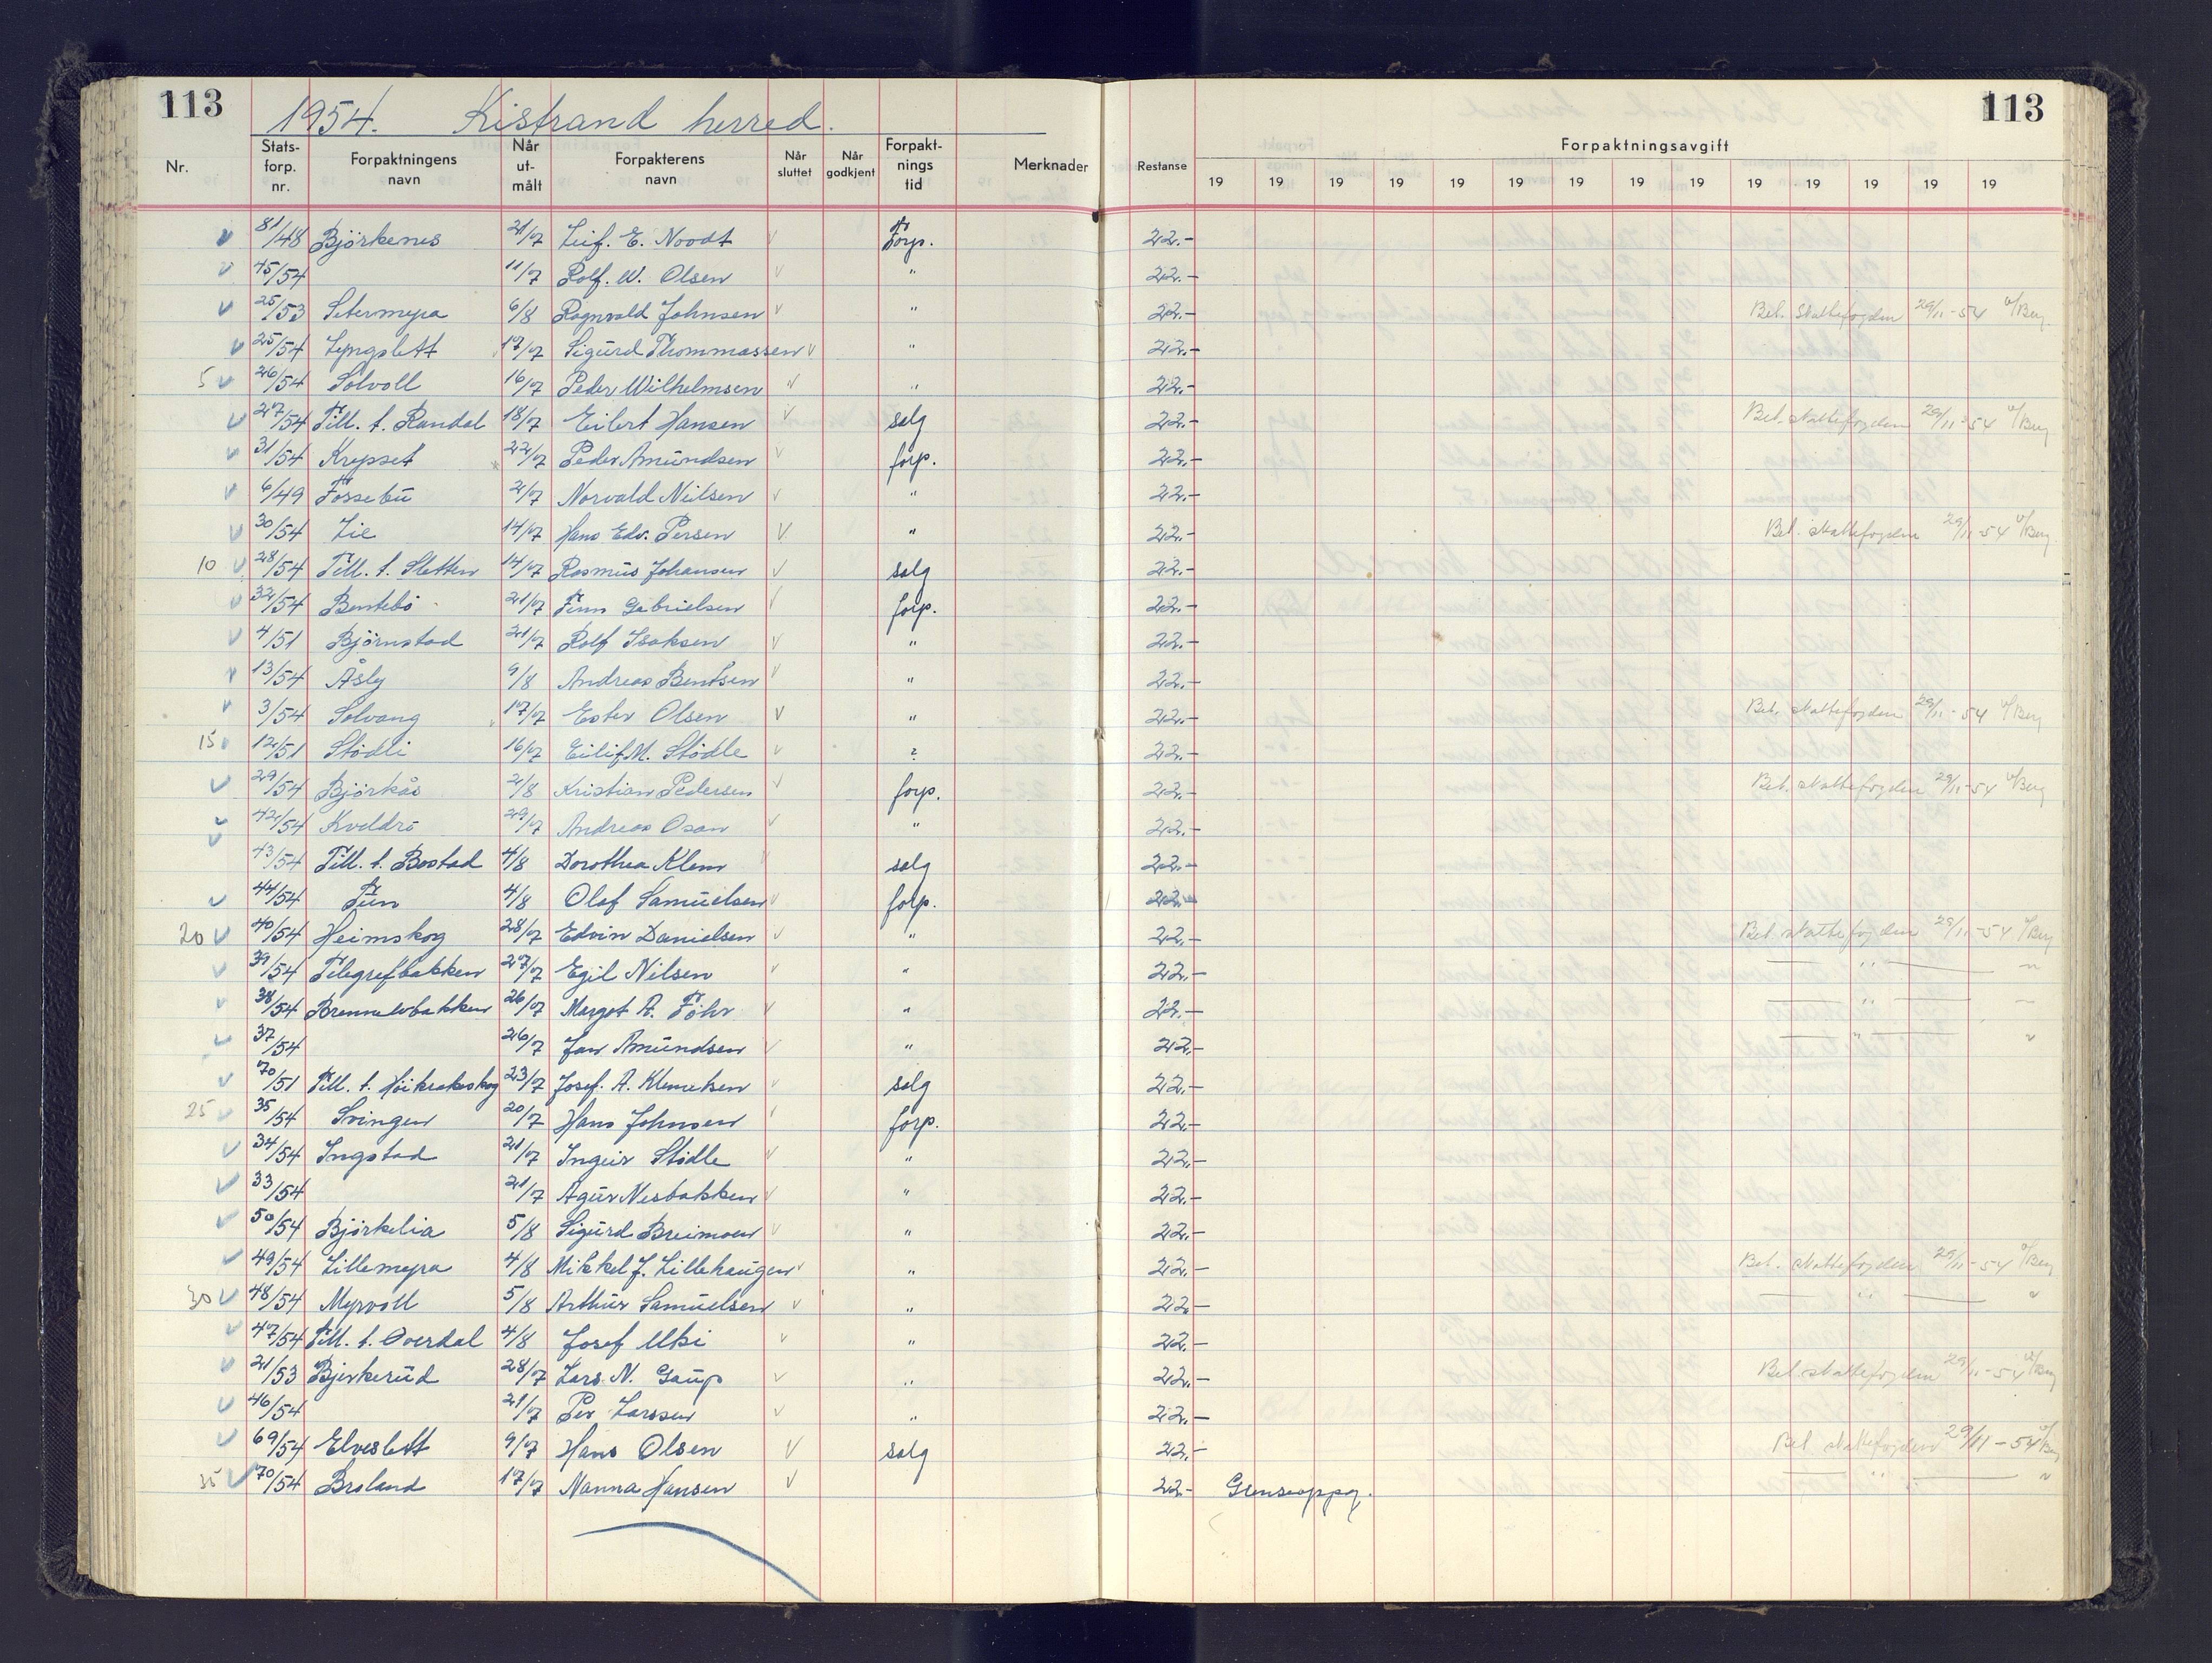 113 1954. Kistrand herred. 113
Nr. Stats-forp. nr. Forpaktningens navn Når ut-målt Forpakterens navn Når sluttet Når godkjent Forpakt-nings tid Merknader Restanse Forpaktningsavgift
19 19 19 19 19 19 19 19 19 19 19 19 19 19
81/48 Björkenes 21/7 Leif. E. Noodt V Forp. 22.-
45/54 11/7 Rolf. W. Olsen V " 22.-
25/53 Setermyra 6/8 Ragnvald Johnsen V " 22.- Bet. Skattefogden 29/11-54 Berg
25/54 Lyngslett 17/7 Sigurd Thommassen V " 22.-
5 26/54 Solvoll 16/7 Peder Wilhelmsen V " 22.-
27/54 Till. t. Randal 18/7 Eilert Hansen V salg 22.- Bet. skattefogden 29/11-54 Berg
31/54 Krepset 22/7 Peder Amundsen V forp. 22.-
6/49 Fossebu 2/7 Norvald Nilsen V " 22.-
30/54 Lie 14/7 Hans Edv. Persen V " 22.- Bet. skattefogden 29/11-54 Berg
10 28/54 Till. t. Sletten 14/7 Rasmus Johansen V salg 22.-
32/54 Bentebo 21/7 Finn Gabrielsen V forp. 22.-
4/51 Björnstad 21/7 Rolf Isaksen V " 22.-
13/54 Åsly 9/8 Andreas Bentsen V " 22.-
3/54 Solvang 17/7 Ester Olsen V " 22.- Bet. skattefogden 29/11-54 Berg
15 12/51 Stödli 16/7 Eilif M. Stödle V ? 22.-
29/54 Björkås 2/8 Kristian Pedersen V forp. 22.- Bet. skattefogden 29/11-54 Berg
42/54 Kveldro 29/7 Andreas Osan V " 22.-
43/54 Till. t. Bostad 4/8 Dorothea Klem V salg 22.-
44/54 Tun 4/8 Olaf Samuelsen V forp. 22.-
20 40/54 Heimskog 28/7 Edvin Danielsen V " 22.- Bet. skattefogden 29/11-54 Berg
39/54 Telegrafbakken 27/7 Egil Nilsen V " 22.- — " —
38/54 Brennelvbakken 26/7 Margot A. Föhr V " 22.- — " —
37/54 26/7 Jan Amundsen V " 22.- — " —
70/51 Till. t. Höikrakeskog 23/7 Josef. A. Klemetsen V salg 22.-
25 35/54 Svingen 20/7 Hans Johnsen V forp. 22.-
34/54 Ingstad 21/7 Ingeir Stödle V " 22.-
33/54 21/7 Agur Nesbakken V " 22.-
50/54 Björkelia 5/8 Sigurd Breimoen V " 22.-
49/54 Lillemyra 4/8 Mikkel J. Lillehaugen V " 22.- Bet. skattefogden 29/11-54 Berg
30 48/54 Myrvoll 5/8 Arthur Samuelsen V " 22.- — " —
47/54 Till. t. Overdal 4/8 Josef Utsi V " 22.-
21/53 Bjerkerud 28/7 Lars. N. Gaup V " 22.- Bet. skattefogden 29/11-54 Berg
46/54 21/7 Per Larssen V " 22.-
69/54 Elveslett 9/7 Hans Olsen V salg 22.- Bet. skattefogden 29/11-54 Berg
35 70/54 Broland 17/7 Nanna Hansen V 22.- Grenseoppg. — " —